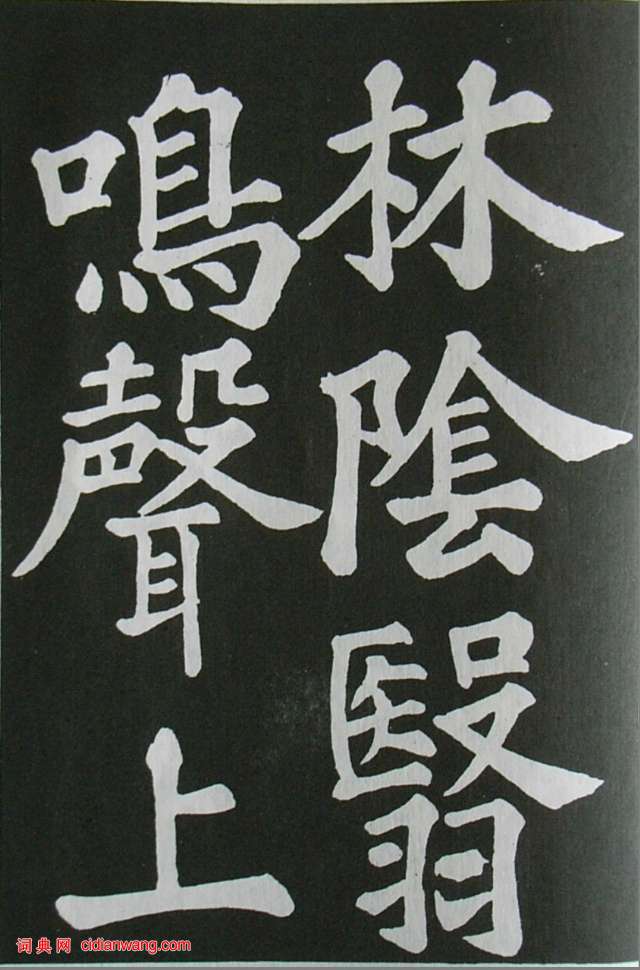 林陰翳
鳴聲上
词典网 cidianwang.com